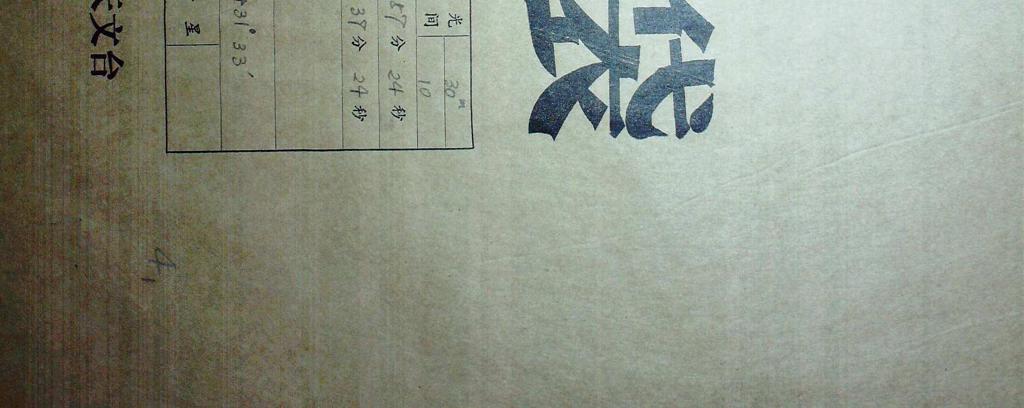 袋
光 30ᵐ
间 10
57分 24秒
37分 24秒
31°33′
星
天文台